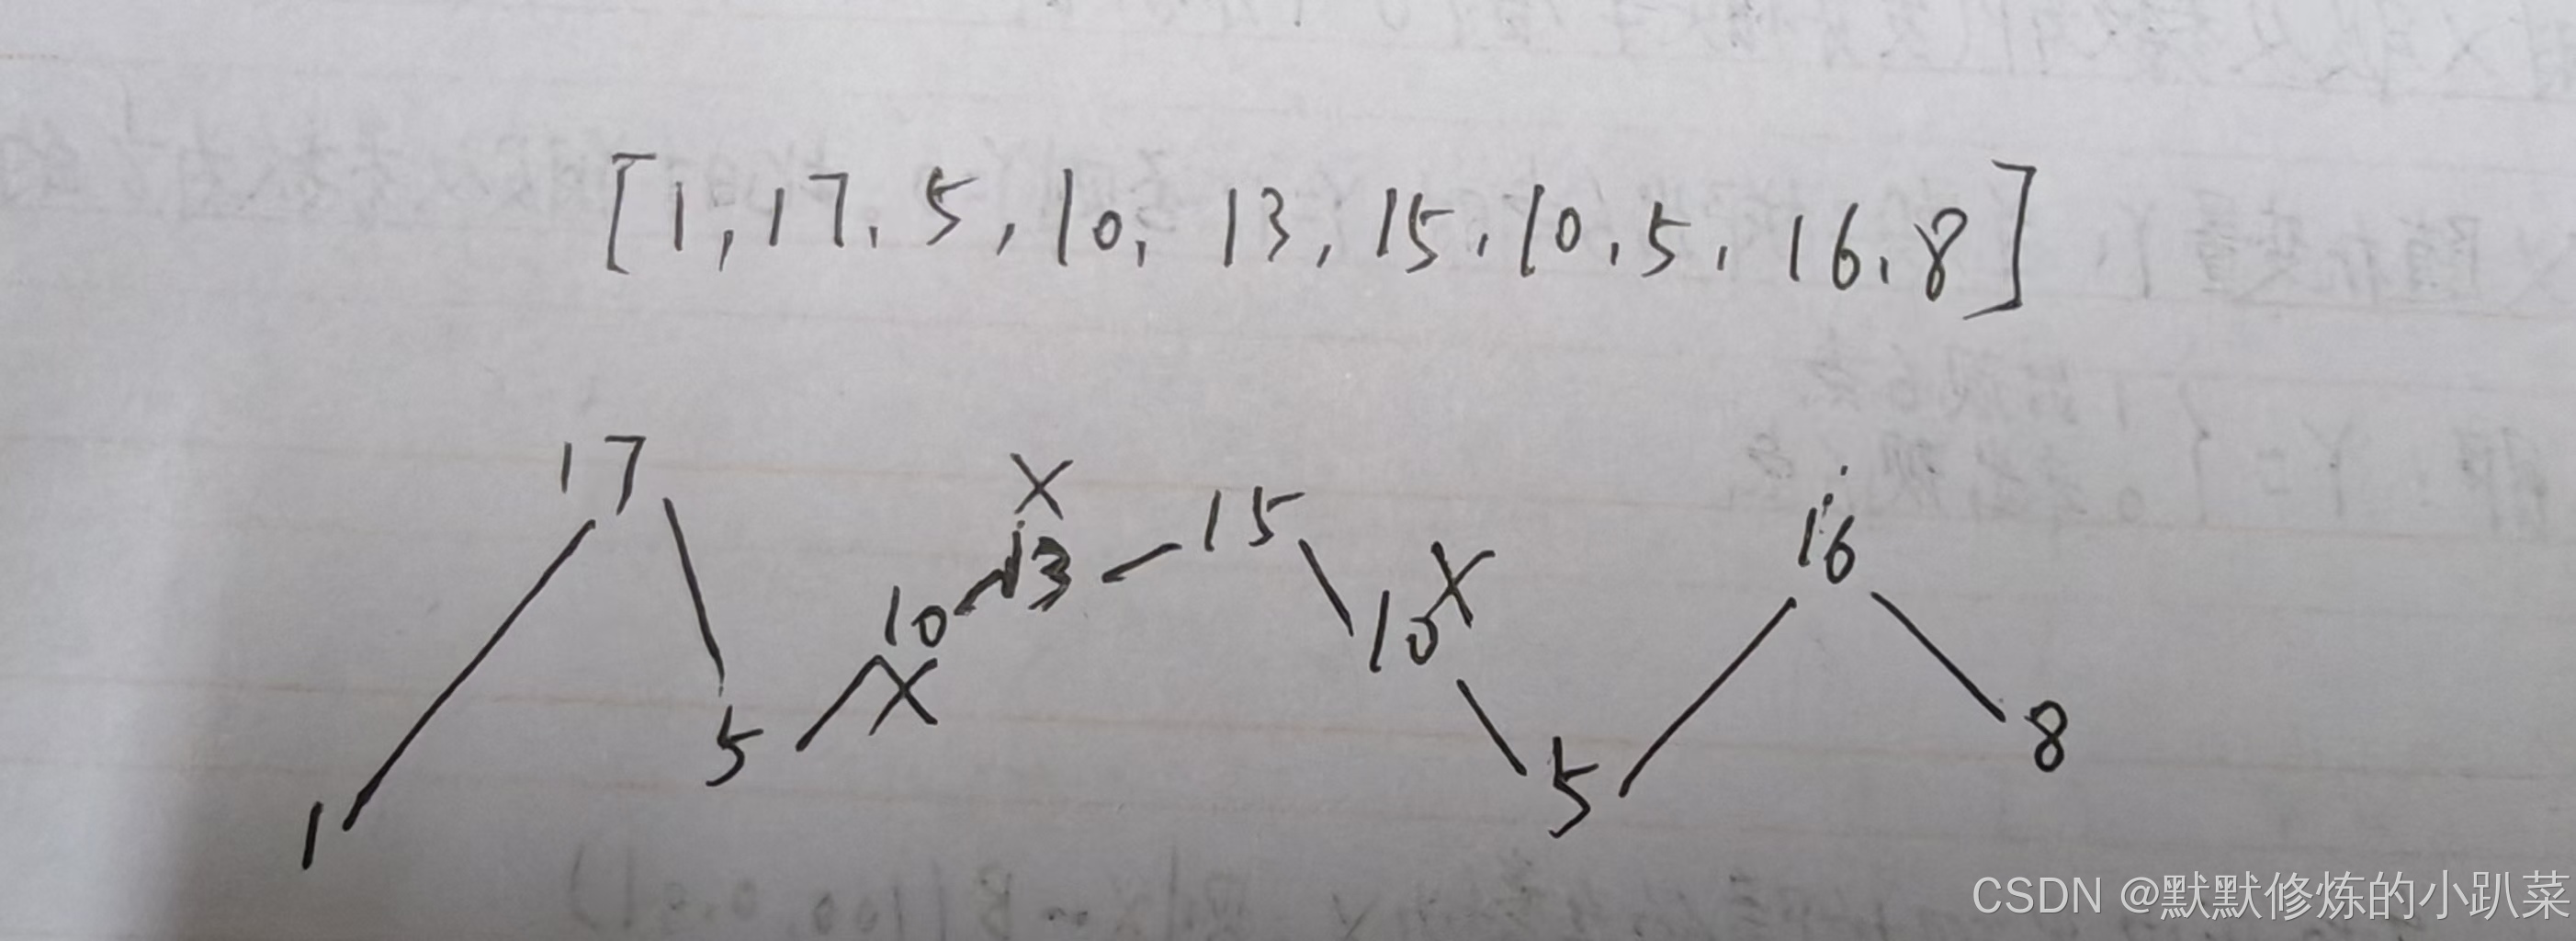 [1,17,5,10,13,15,10,5,16,8]
17
X
13
15
X
16
10
10
X
5
5
8
1
CSDN @默默修炼的小趴菜